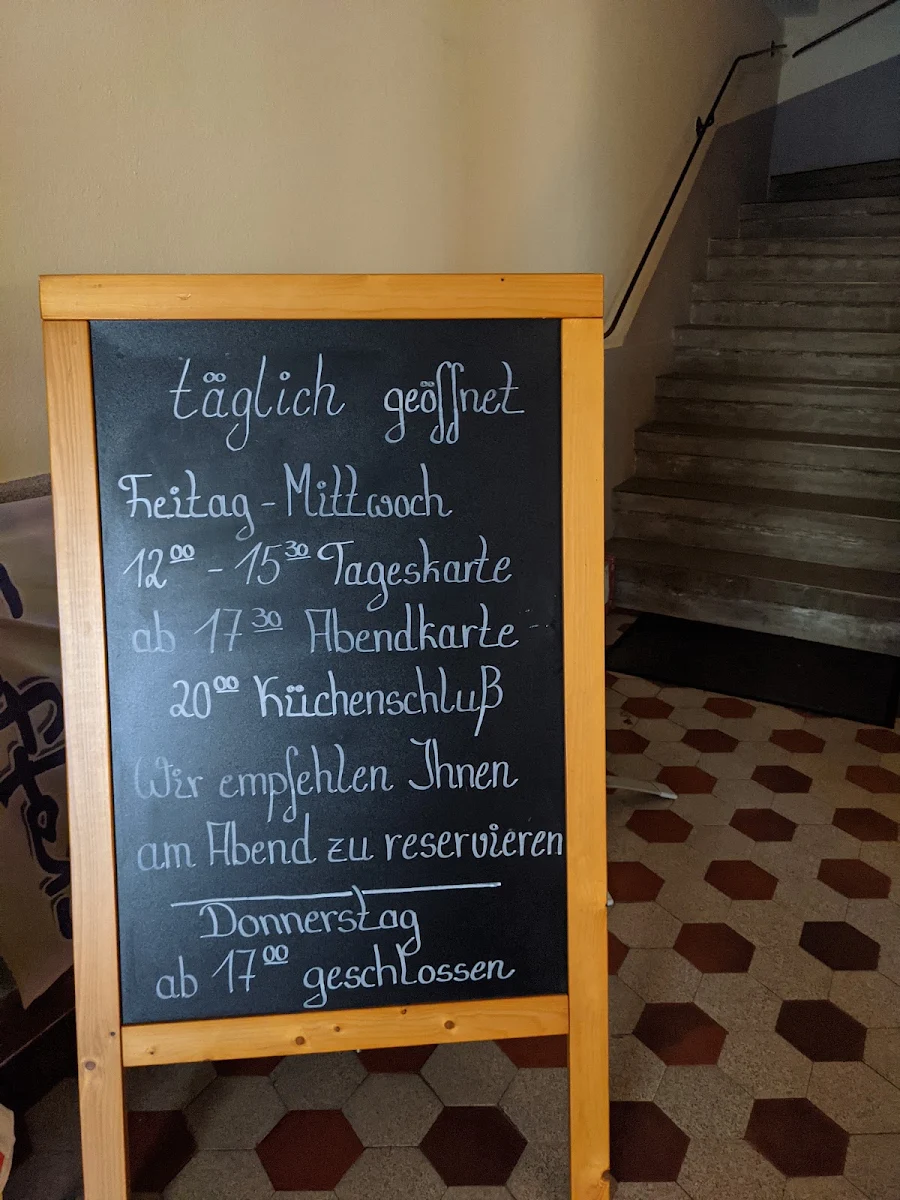 täglich geöffnet
Freitag - Mittwoch
12⁰⁰ - 15³⁰ Tageskarte
ab 17³⁰ Abendkarte
20⁰⁰ Küchenschluß
Wir empfehlen Ihnen
am Abend zu reservieren
Donnerstag
ab 17⁰⁰ geschlossen